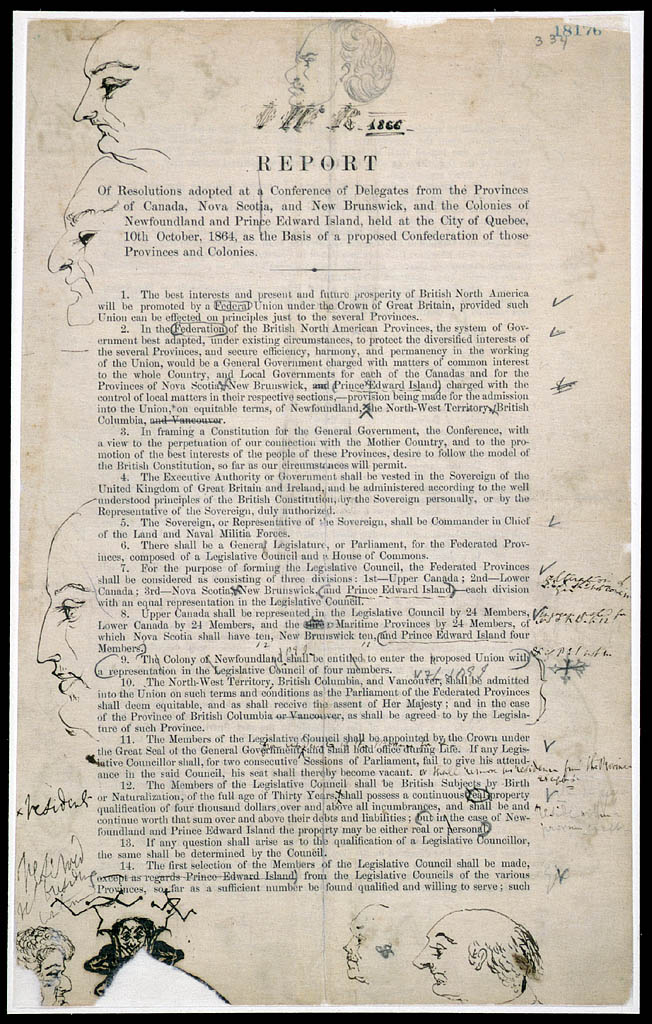 18176
334
1866
REPORT
Of Resolutions adopted at a Conference of Delegates from the Provinces
of Canada, Nova Scotia, and New Brunswick, and the Colonies of
Newfoundland and Prince Edward Island, held at the City of Quebec,
10th October, 1864, as the Basis of a proposed Confederation of those
Provinces and Colonies.
1. The best interests and present and future prosperity of British North America
will be promoted by a Federal Union under the Crown of Great Britain, provided such
Union can be effected on principles just to the several Provinces.
2. In the Federation of the British North American Provinces, the system of Gov-
ernment best adapted, under existing circumstances, to protect the diversified interests of
the several Provinces, and secure efficiency, harmony, and permanency in the working
of the Union, would be a General Government charged with matters of common interest
to the whole Country, and Local Governments for each of the Canadas and for the
Provinces of Nova Scotia, New Brunswick, and Prince Edward Island, charged with the
control of local matters in their respective sections,—provision being made for the admission
into the Union, on equitable terms, of Newfoundland, the North-West Territory, British
Columbia, and Vancouver.
3. In framing a Constitution for the General Government, the Conference, with
a view to the perpetuation of our connection with the Mother Country, and to the pro-
motion of the best interests of the people of these Provinces, desire to follow the model of
the British Constitution, so far as our circumstances will permit.
4. The Executive Authority or Government shall be vested in the Sovereign of the
United Kingdom of Great Britain and Ireland, and be administered according to the well
understood principles of the British Constitution, by the Sovereign personally, or by the
Representative of the Sovereign, duly authorized.
5. The Sovereign, or Representative of the Sovereign, shall be Commander in Chief
of the Land and Naval Militia Forces.
6. There shall be a General Legislature, or Parliament, for the Federated Prov-
inces, composed of a Legislative Council and a House of Commons.
7. For the purpose of forming the Legislative Council, the Federated Provinces
shall be considered as consisting of three divisions: 1st—Upper Canada; 2nd—Lower
Canada; 3rd—Nova Scotia, New Brunswick, and Prince Edward Island,—each division
with an equal representation in the Legislative Council.
8. Upper Canada shall be represented in the Legislative Council by 24 Members,
Lower Canada by 24 Members, and the three Maritime Provinces by 24 Members, of
which Nova Scotia shall have ten, New Brunswick ten, and Prince Edward Island four
Members.
9. The Colony of Newfoundland shall be entitled to enter the proposed Union with
a representation in the Legislative Council of four members.
10. The North-West Territory, British Columbia, and Vancouver, shall be admitted
into the Union on such terms and conditions as the Parliament of the Federated Provinces
shall deem equitable, and as shall receive the assent of Her Majesty; and in the case
of the Province of British Columbia or Vancouver, as shall be agreed to by the Legisla-
ture of such Province.
11. The Members of the Legislative Council shall be appointed by the Crown under
the Great Seal of the General Government, and shall hold office during Life. If any Legis-
lative Councillor shall, for two consecutive Sessions of Parliament, fail to give his attend-
ance in the said Council, his seat shall thereby become vacant.
12. The Members of the Legislative Council shall be British Subjects by Birth
or Naturalization, of the full age of Thirty Years, shall possess a continuous real property
qualification of four thousand dollars over and above all incumbrances, and shall be and
continue worth that sum over and above their debts and liabilities; but in the case of New-
foundland and Prince Edward Island the property may be either real or personal.
13. If any question shall arise as to the qualification of a Legislative Councillor,
the same shall be determined by the Council.
14. The first selection of the Members of the Legislative Council shall be made,
except as regards Prince Edward Island, from the Legislative Councils of the various
Provinces, so far as a sufficient number be found qualified and willing to serve; such
resident